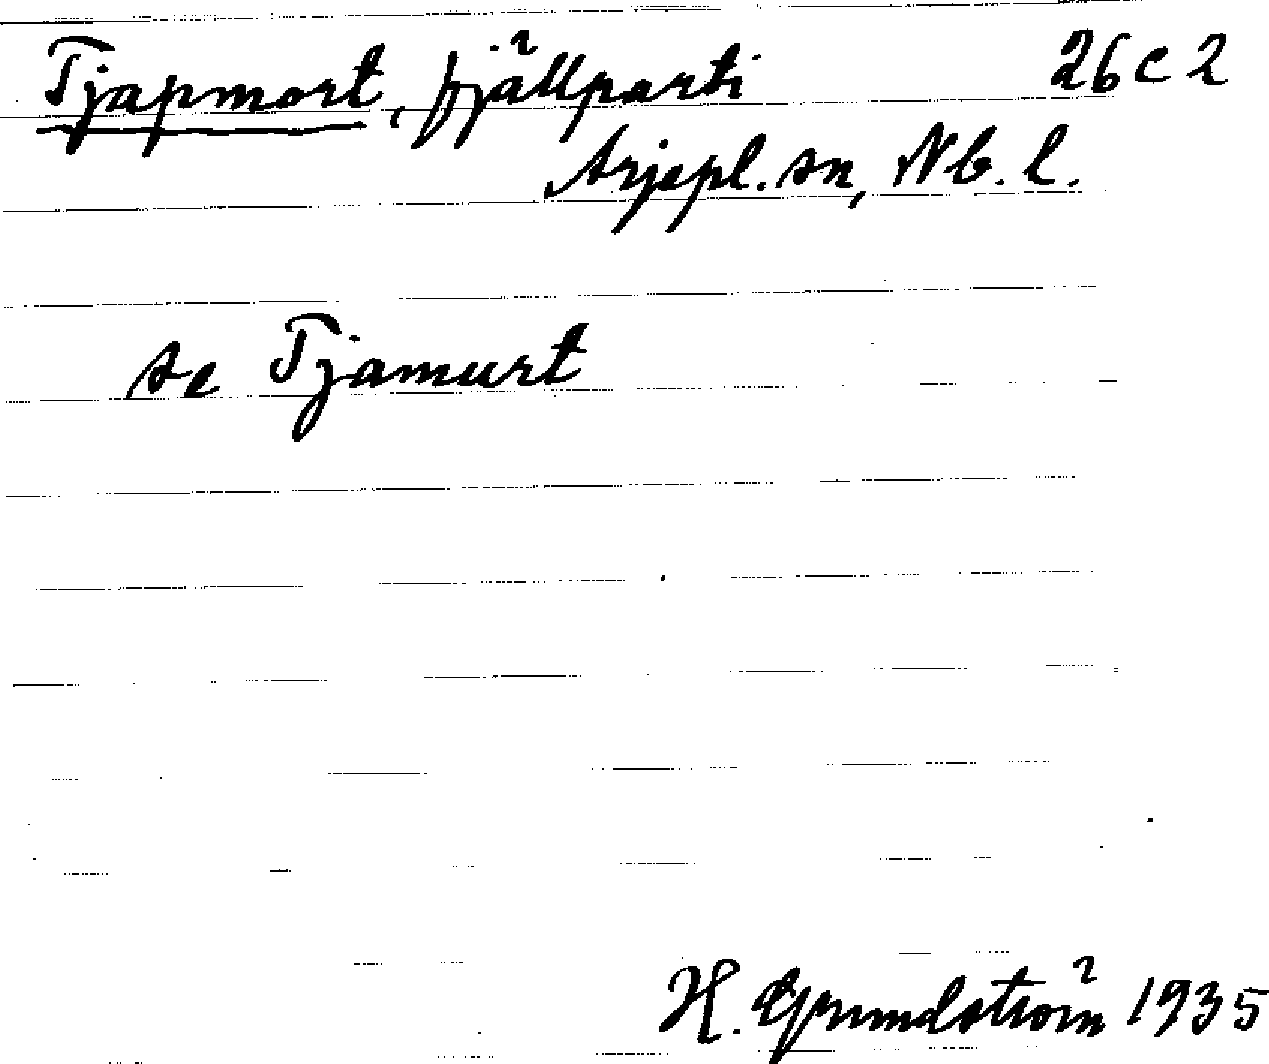 Tjapmort, fjällparti 26 c 2
Arjepl. sn, Nb. l.
se Tjamurt
H. Grundström 1935